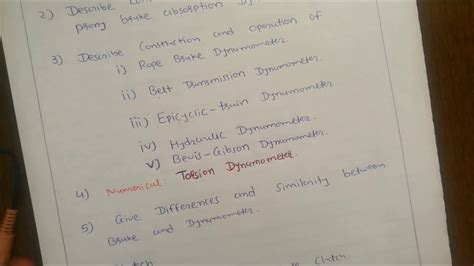 2) Describe
prony brake absorption
3) Describe Construction and operation of
i) Rope Brake Dynamometer
ii) Belt Transmission Dynamometer
iii) Epicyclic-train Dynamometer
iv) Hydraulic Dynamometer
v) Bevis-Gibson Dynamometer.
4) Numerical: Torsion Dynamometer.
5) Give Differences and Similarity between
Brake and Dynamometer.
Clutch